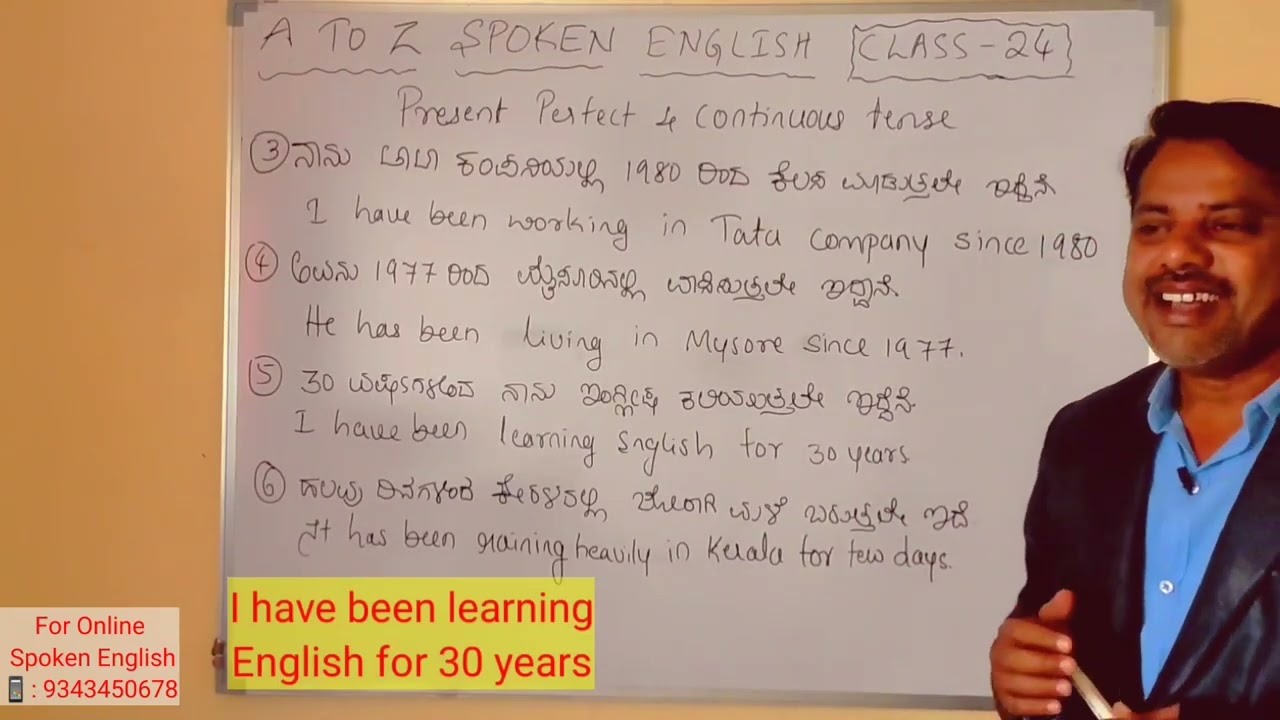 A TO Z SPOKEN ENGLISH CLASS-24
Present Perfect & continuous tense
③ ನಾನು ಟಾಟಾ ಕಂಪನಿಯಲ್ಲಿ 1980 ರಿಂದ ಕೆಲಸ ಮಾಡುತ್ತಲೇ ಇದ್ದೆನೆ
I have been working in Tata company since 1980
④ ಅವನು 1977 ರಿಂದ ಮೈಸೂರಿನಲ್ಲಿ ವಾಸಿಸುತ್ತಲೇ ಇದ್ದಾನೆ.
He has been living in Mysore since 1977.
⑤ 30 ವರ್ಷಗಳಿಂದ ನಾನು ಇಂಗ್ಲೀಷ್ ಕಲಿಯುತ್ತಲೇ ಇದ್ದೆನೆ.
I have been learning English for 30 years
⑥ ಹಲವು ದಿನಗಳಿಂದ ಕೇರಳದಲ್ಲಿ ಜೋರಾಗಿ ಮಳೆ ಬರುತ್ತಲೇ ಇದೆ
It has been raining heavily in Kerala for few days.
I have been learning
English for 30 years
For Online
Spoken English
📱: 9343450678